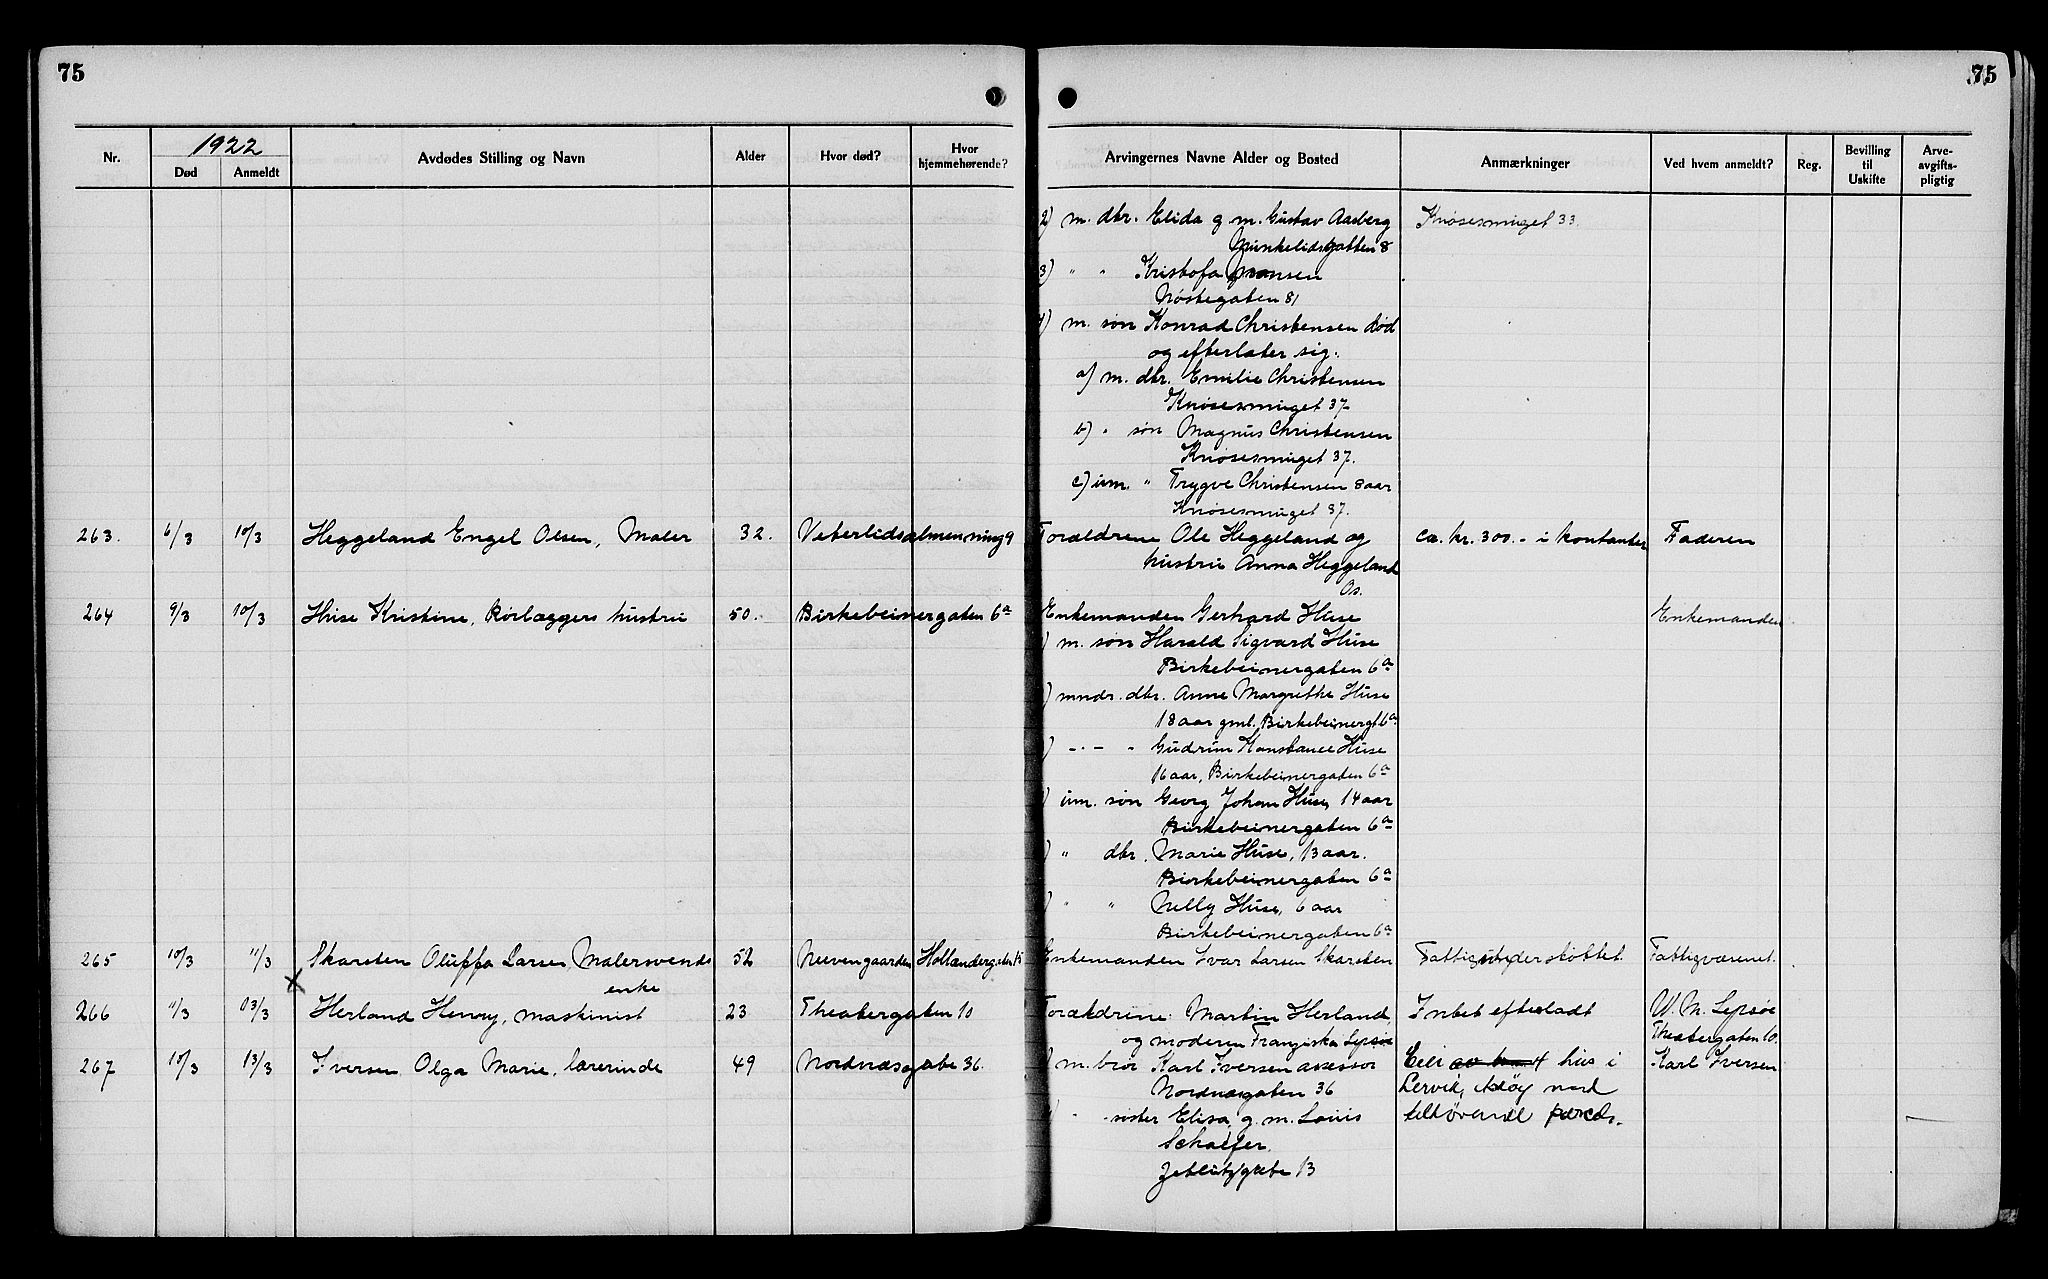 75
75
1922
Nr.
Død
Anmeldt
Avdødes Stilling og Navn
Alder
Hvor død?
Hvor
hjemmehørende?
Arvingernes Navne Alder og Bosted
Anmærkninger
Ved hvem anmeldt?
Reg.
Bevilling
til
Uskifte
Arve-
avgifts-
pligtig
2) m. dtr. Elida g m. Gustav Aasberg Knøsesmuget 33.
3) " " Kristofa
Nøstegaten 81
4) m. søn Konrad Christensen død
og efterlater sig:
a) m. dtr. Emilie Christensen
Knøsesmuget 37
b) " søn Magnus Christensen
Knøsesmuget 37.
c) um. " Trygve Christensen 8 aar
Knøsesmuget 37.
263. 6/3 10/3 Heggeland Engel Olsen, Maler 32. Veterlidsalmenning 9 Forældrene Ole Heggeland og ca. kr. 300.- i kontanter Faderen
hustru Anna Heggeland
Os.
264 9/3 10/3 Huse Kristine, Rørlæggers hustru 50. Birkebeinergaten 6a Enkemanden Gerhard Huse Enkemanden
m. søn Harald Sigvard Huse
Birkebeinergaten 6a
mndr. dtr. Anne Margrethe Huse
18 aar gml. Birkebeinergt 6a
Gudrun Konstance Huse
16 aar, Birkebeinergaten 6a
um. søn Georg Johan Huse, 14 aar
Birkebeinergaten 6a
" dtr. Marie Huse, 13 aar.
Birkebeinergaten 6a
" " Nelly Huse, 6 aar
Birkebeinergaten 6a
265 10/3 11/3 Skarsten Oluffa Larsen Malersvends 52 Neevengaarden Hollændergaten 15 Enkemanden Ivar Larsen Skarsten Fattigunderstøttet. Fattigvæsenet.
enke
266 11/3 13/3 Herland Henry, maskinist 23 Theatergaten 10 Forældrene: Martin Herland, Intet efterladt W. M. Lepsøe
og moderen Franziska Lepsøe Theatergaten 10.
267 10/3 13/3 Iversen Olga Marie, lærerinde 49 Nordnæsgate 36. m. bror Karl Iversen assessor Eier hus i Karl Iversen
Nordnæsgaten 36 Lervik, Askøy med
søster Elisa, g. m. Louis tilhørende
Schaefer.
gate 13